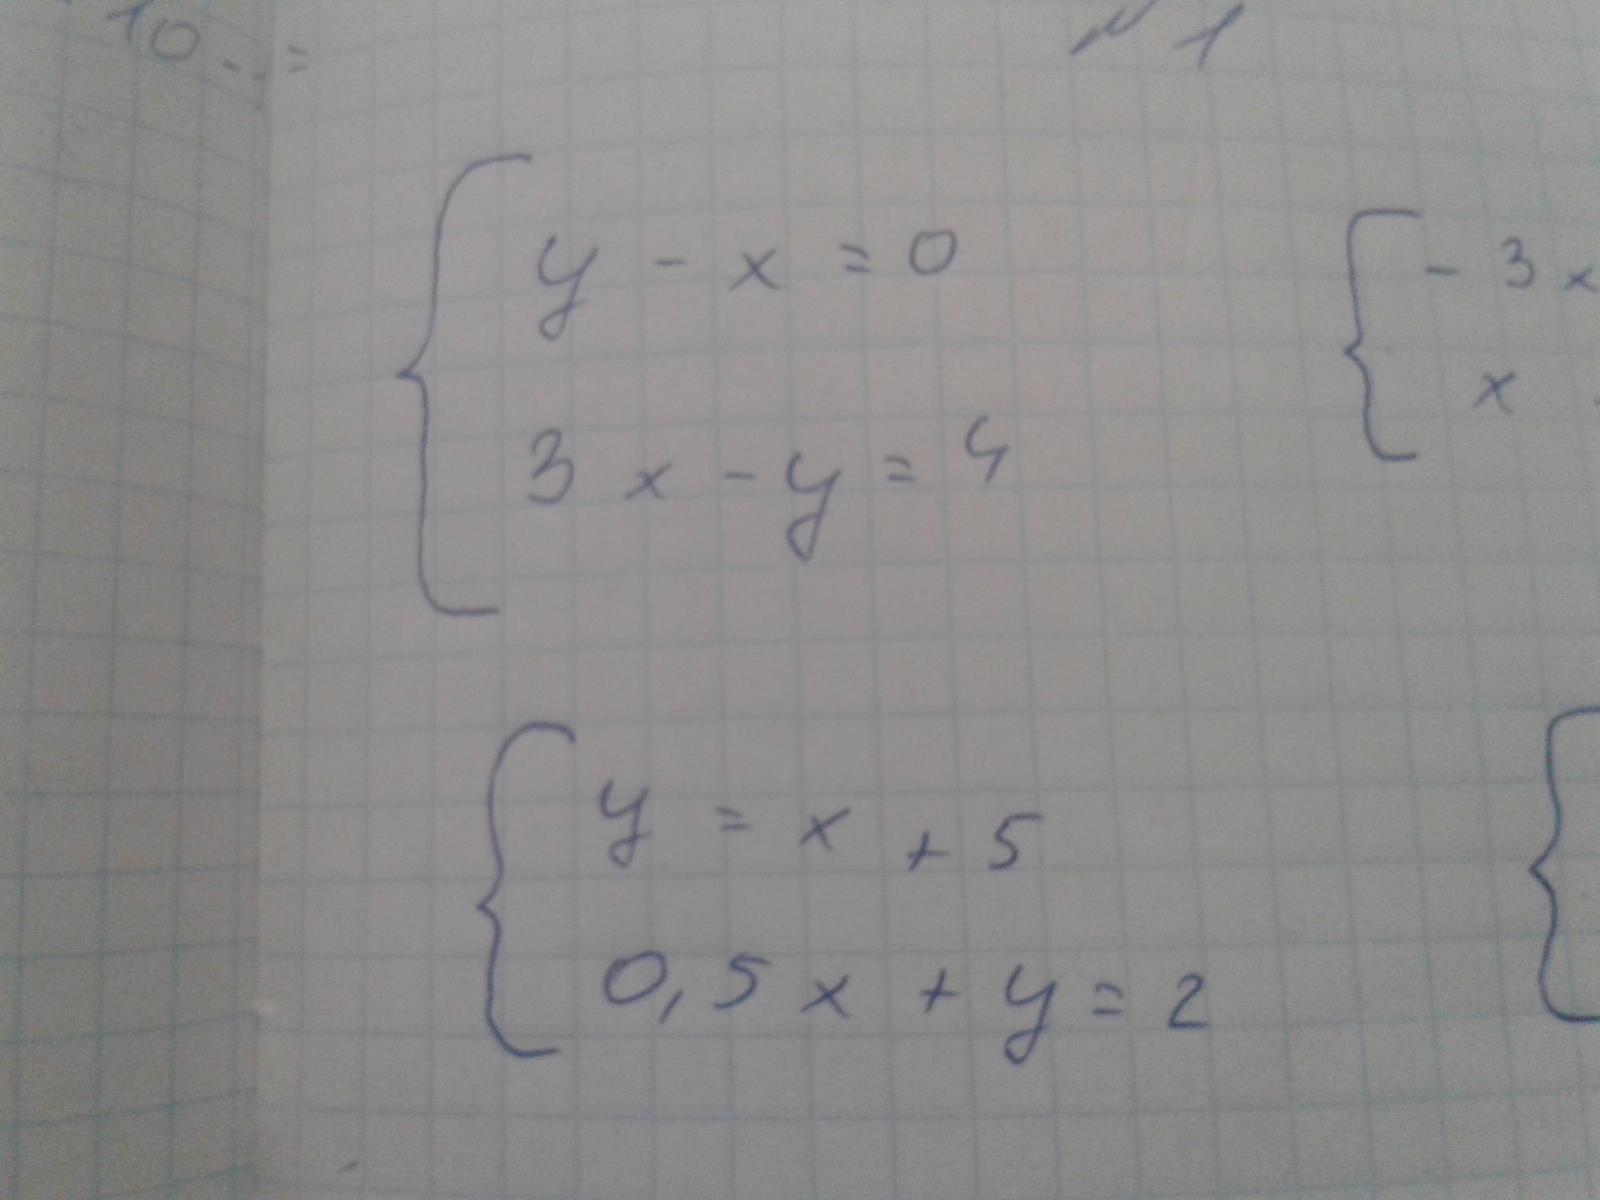 10 . . =
№ 1
y - x = 0
3x - y = 4
- 3x
x
y = x + 5
0,5x + y = 2